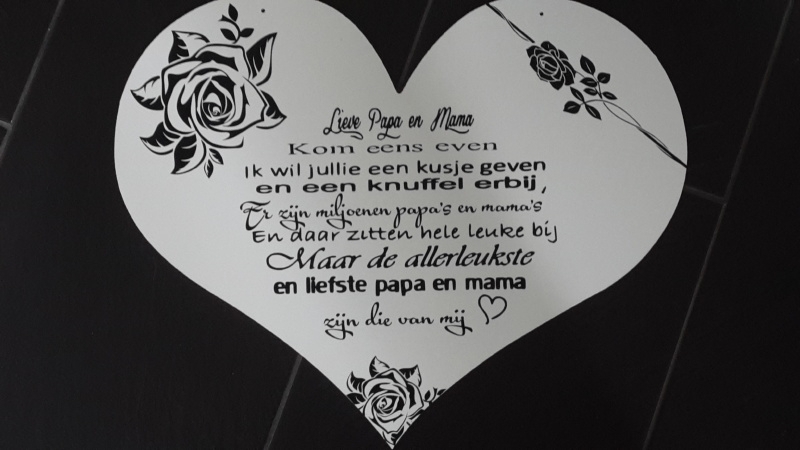 Lieve Papa en Mama
Kom eens even
Ik wil jullie een kusje geven
en een knuffel erbij,
Er zijn miljoenen papa's en mama's
En daar zitten hele leuke bij
Maar de allerleukste
en liefste papa en mama
zijn die van mij